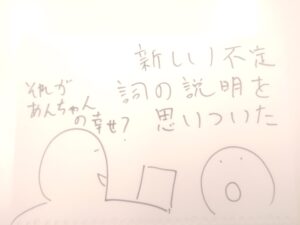 新しい不定
詞の説明を
思いついた
それが
あんちゃん
の幸せ?